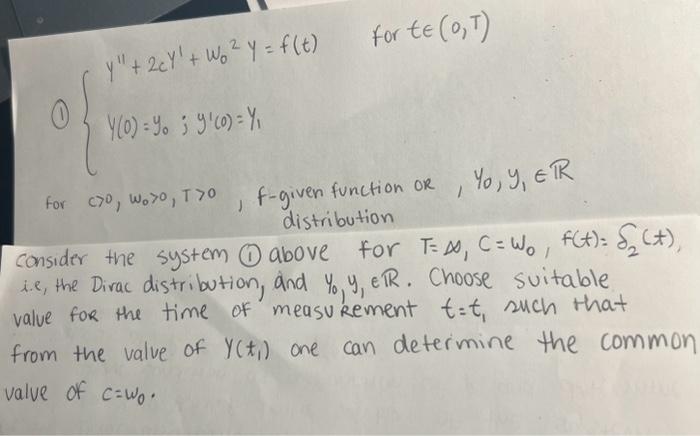 ① y'' + 2cy' + w₀² y = f(t) for t∈(0,T)
y(0)=y₀ ; y'(0)=y₁
for c>0, w₀>0, T>0 , f-given function or , y₀, y₁ ∈ ℝ
distribution
consider the system ① above for T=∞, C=w₀, f(t)=δ₂(t),
i.e, the Dirac distribution, and y₀,y₁ ∈ℝ. Choose suitable
value for the time of measurement t=t₁ such that
from the value of y(t₁) one can determine the common
value of c=w₀.